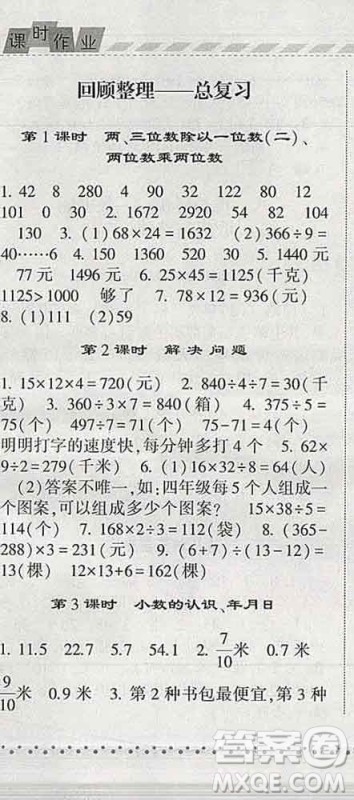 课时作业
回顾整理——总复习
第1课时 两、三位数除以一位数(二)、
两位数乘两位数
1. 42 8 280 4 90 32 122 80 12
101 0 30 2. 1672 2920 154 120
130 3. (1)68×24=1632 (2)366÷9=
40……6 4. 50 150 1360 30 5. 1440元
77元 1496元 6. 25×45=1125(千克)
1125>1000 够了 7. 78×12=936(元)
8. (1)111 (2)59
第2课时 解决问题
1. 15×12×4=720(元) 2. 840÷4÷7=30(千
克) 3. 360÷3×7=840(箱) 4. 375÷5=
75(个) 497÷7=71(个) 75-71=4(个)
明明打字的速度快,每分钟多打4个 5. 62×
9÷2=279(千米) 6. (1)16×8÷2=64(人)
(2)答案不唯一,如:四年级每5个人组成一
个图案,可以组成多少个图案? 15×38÷5=
114(个) 7. 168×2÷3=112(袋) 8. (365-
288)×3=231(元) 9. (6+7)÷(13-12)=
13(棵) 12×13+6=162(棵)
第3课时 小数的认识、年月日
1. 11.5 22.7 5.7 54.1 2. 7/10米
9/10米 0.9米 3. 第2种书包最便宜,第3种
答案圈
MXQE.COM